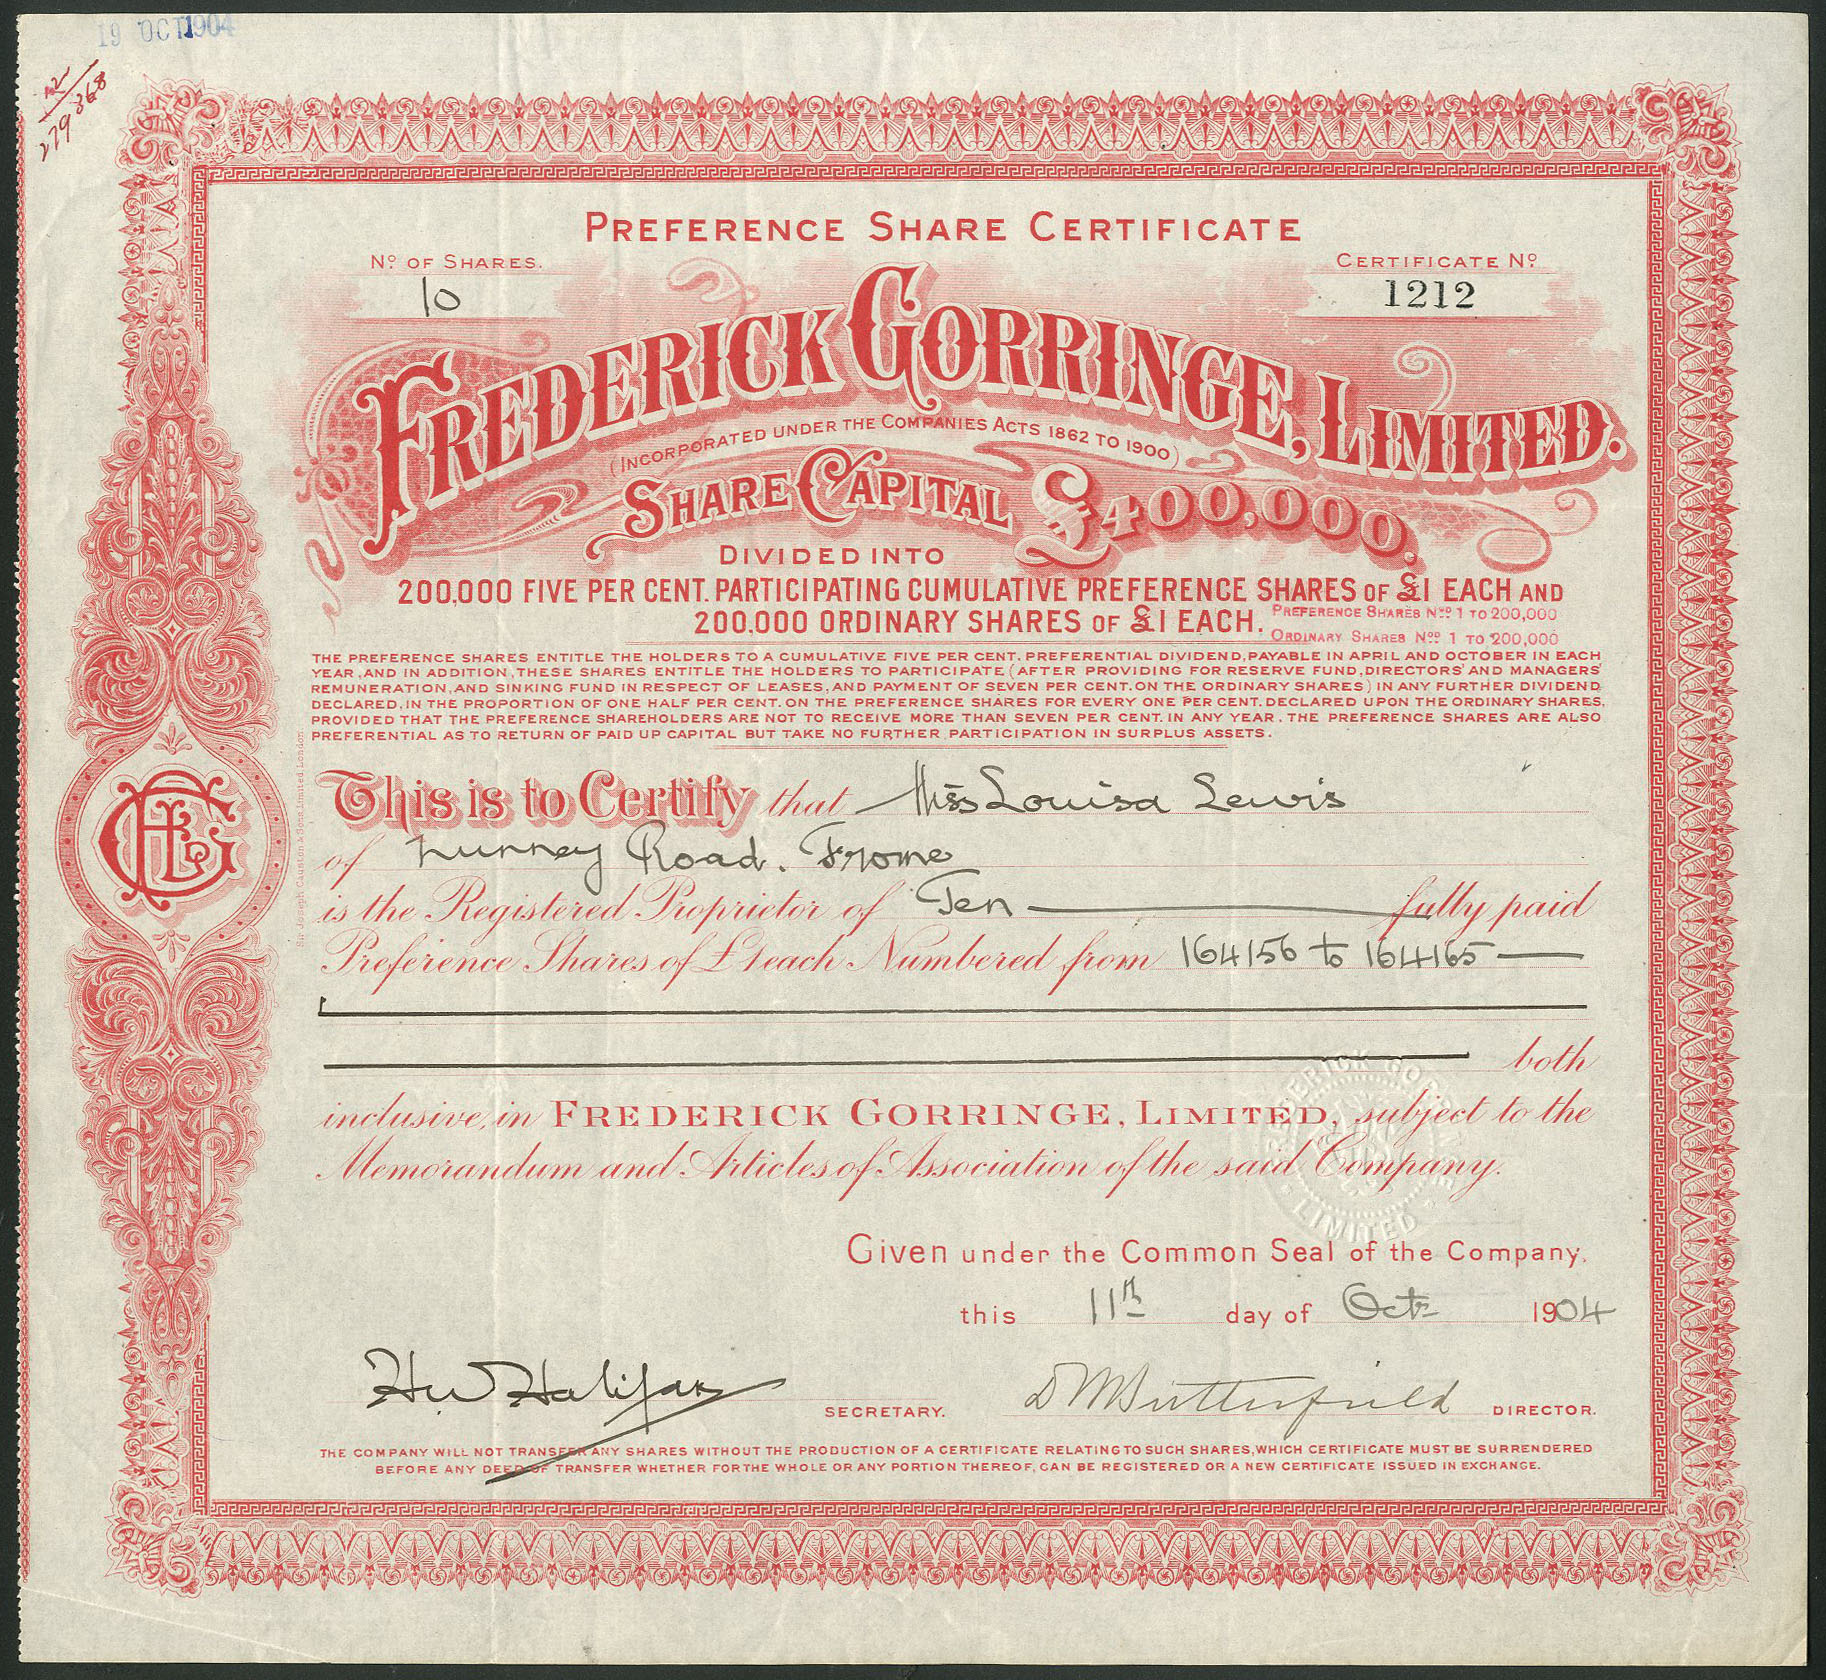 19 OCT 1904
279868
PREFERENCE SHARE CERTIFICATE
Nº OF SHARES.
10
CERTIFICATE Nº
1212
FREDERICK GORRINGE, LIMITED.
(INCORPORATED UNDER THE COMPANIES ACTS 1862 TO 1900)
SHARE CAPITAL £400,000.
DIVIDED INTO
200,000 FIVE PER CENT. PARTICIPATING CUMULATIVE PREFERENCE SHARES OF £1 EACH AND
200,000 ORDINARY SHARES OF £1 EACH.
PREFERENCE SHARES Nos. 1 TO 200,000
ORDINARY SHARES Nos. 1 TO 200,000
THE PREFERENCE SHARES ENTITLE THE HOLDERS TO A CUMULATIVE FIVE PER CENT. PREFERENTIAL DIVIDEND, PAYABLE IN APRIL AND OCTOBER IN EACH
YEAR, AND IN ADDITION, THESE SHARES ENTITLE THE HOLDERS TO PARTICIPATE (AFTER PROVIDING FOR RESERVE FUND, DIRECTORS' AND MANAGERS'
REMUNERATION, AND SINKING FUND IN RESPECT OF LEASES, AND PAYMENT OF SEVEN PER CENT. ON THE ORDINARY SHARES) IN ANY FURTHER DIVIDEND
DECLARED, IN THE PROPORTION OF ONE HALF PER CENT. ON THE PREFERENCE SHARES FOR EVERY ONE PER CENT. DECLARED UPON THE ORDINARY SHARES,
PROVIDED THAT THE PREFERENCE SHAREHOLDERS ARE NOT TO RECEIVE MORE THAN SEVEN PER CENT. IN ANY YEAR. THE PREFERENCE SHARES ARE ALSO
PREFERENTIAL AS TO RETURN OF PAID UP CAPITAL BUT TAKE NO FURTHER PARTICIPATION IN SURPLUS ASSETS.
This is to Certify that Miss Louisa Lewis
of Nunney Road. Frome
is the Registered Proprietor of Ten fully paid
Preference Shares of £1 each Numbered from 164156 to 164165
both
inclusive, in FREDERICK GORRINGE, LIMITED, subject to the
Memorandum and Articles of Association of the said Company.
FREDERICK GORRINGE LIMITED
Given under the Common Seal of the Company,
this 11th day of Oct 1904
HW Halifax SECRETARY.
D M Butterfield DIRECTOR.
THE COMPANY WILL NOT TRANSFER ANY SHARES WITHOUT THE PRODUCTION OF A CERTIFICATE RELATING TO SUCH SHARES, WHICH CERTIFICATE MUST BE SURRENDERED
BEFORE ANY DEED OF TRANSFER WHETHER FOR THE WHOLE OR ANY PORTION THEREOF, CAN BE REGISTERED OR A NEW CERTIFICATE ISSUED IN EXCHANGE.
Sir Joseph Causton & Sons, Limited London